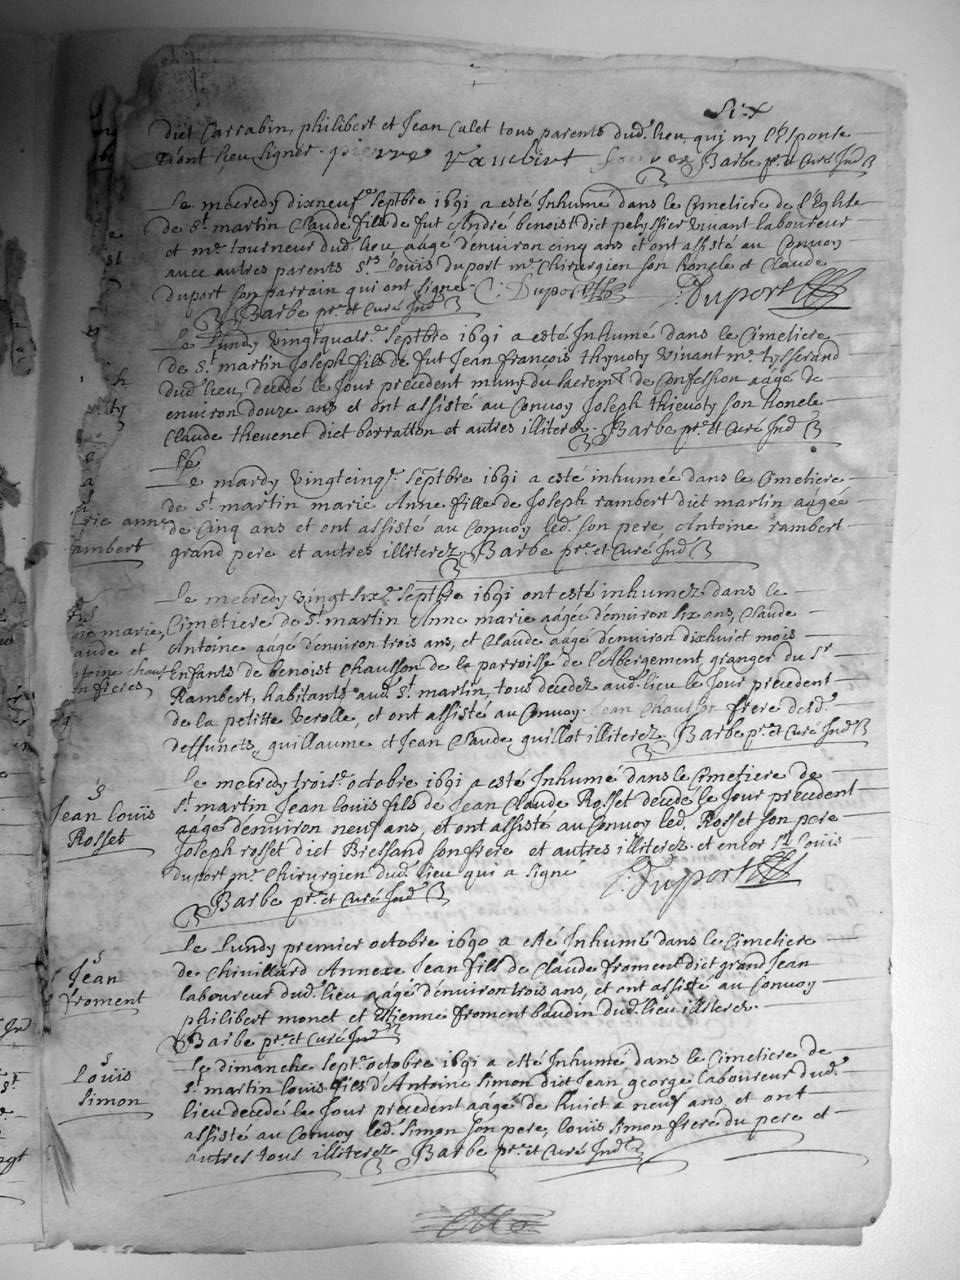 Six
dict Carrabin, philibert et Jean Culet tous parents dud. lieu, qui ny
dont lieu signer. pierre Barbe pr. et Curé Ind
Le mecredy dixneuf Septbre 1691 a esté Inhumé dans le Cimetiere de l'Eglise
de St martin Claude fils de fut André benoist dict pelyssier vivant laboureur
et me tourneur dud. lieu aagé d'environ cinq ans et ont assisté au Convoy
avec autres parents Srs Loüis duport me Chirurgien son honcle et Claude
duport son parrain qui ont signé. C. Duport Duport
Barbe pr. et Curé Ind
Le Lundy vingtquatre Septbre 1691 a esté Inhumé dans le Cimetiere
de St martin Joseph fils de fut Jean françois thyvoty vivant me tysserand
dud. lieu, decedé le Jour precedent muny du sacremt de Confession aagé de
environ douze ans et ont assisté au Convoy Joseph thievoty son honcle
Claude thevenet dict borratton et autres illiterez. Barbe pr. et Curé Ind
Le
Le mardy vingtcinq. Septbre 1691 a esté inhumée dans le Cimetiere
de St martin marie Anne fille de Joseph rambert dict martin aagée
de Cinq ans et ont assisté au Convoy led. son pere Antoine rambert
grand pere et autres illiterez. Barbe pr. et Curé Ind
rie anne
ambert
Le mecredy vingtsix. Septbre 1691 ont esté inhumez dans le
Cimetiere de St martin Anne marie aagée d'environ six ans, Claude
Antoine aagé d'environ trois ans, et Claude aagé d'environ dixhuict mois
Enfants de benoist Chausson de la parroisse de l'Abergement, granger du Sr
Rambert, habitants aud. St martin, tous decedez aud. lieu le Jour precedent
de la petitte verolle, et ont assisté au Convoy Jean frere desd.
deffuncts, guillaume et Jean Claude guillot illiterez Barbe pr. et Curé Ind
ne marie,
aude et
n freres,
Le mecredy trois. octobre 1691 a esté Inhumé dans le Cimetiere de
St martin Jean Louis fils de Jean Claude Rosset decedé le Jour precedent
aagé d'environ neuf ans, et ont assisté au Convoy led. Rosset son pere
Joseph rosset dict Bressand son frere et autres illiterez. et encor Sr Loüis
duport me Chirurgien dud. lieu qui a signé Duport
Barbe pr. et Curé Ind
S
Jean Louis
Rosset
Le Lundy premier octobre 1690 a esté Inhumé dans le Cimetiere
de Chivillard Annexe Jean fils de Claude froment dict grand Jean
laboureur dud. lieu aagé d'environ trois ans, et ont assisté au Convoy
philibert monet et Etienne froment baudin dud. lieu illiterez.
Barbe pr. et Curé Ind
S
Jean
froment
Le dimanche sept. octobre 1691 a esté Inhumé dans le Cimetiere de
St martin Louis fils d'Antoine Simon dict Jean george laboureur dud.
lieu decedé le Jour precedent aagé de huict a neuf ans, et ont
assisté au Convoy led. Simon son pere, Louis Simon frere du pere et
autres tous illiterez Barbe pr. et Curé Ind
S
Loüis
Simon